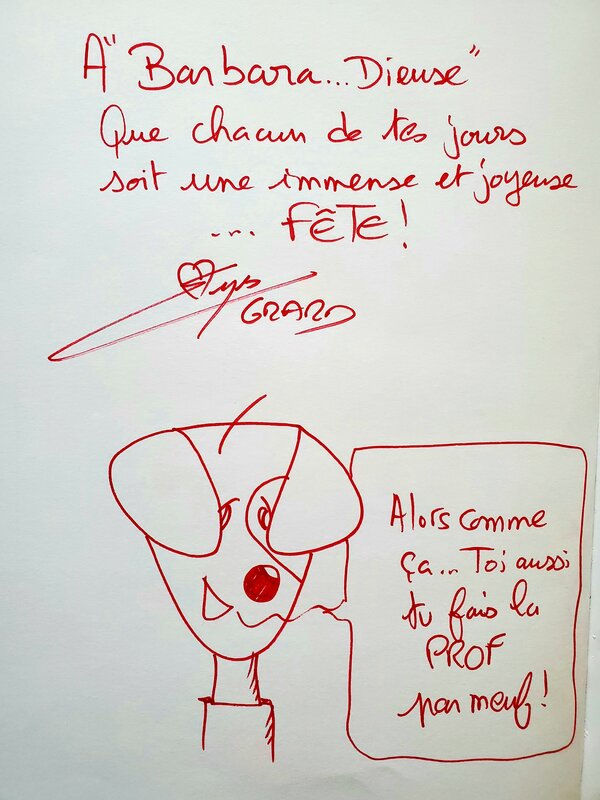 A "Barbara...Dieuse"
Que chacun de tes jours
soit une immense et joyeuse
... FÊTE!
GRARD
Alors comme
ça... Toi aussi
tu fais la
PROF
par meuf!